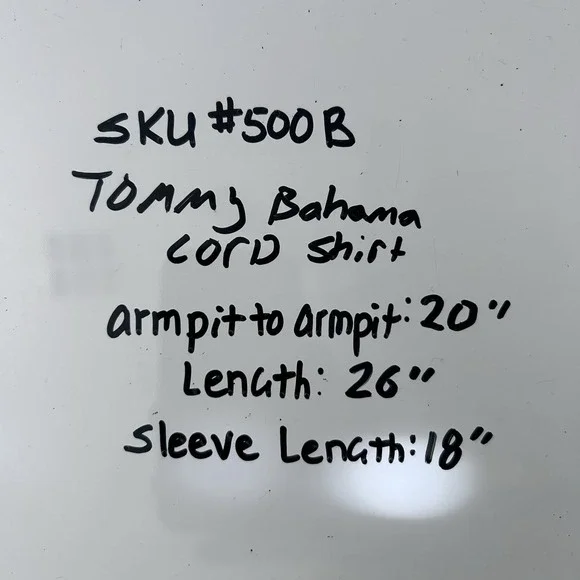 SKU #500B
Tommy Bahama
CORD Shirt
armpit to armpit: 20"
Length: 26"
Sleeve Length: 18"